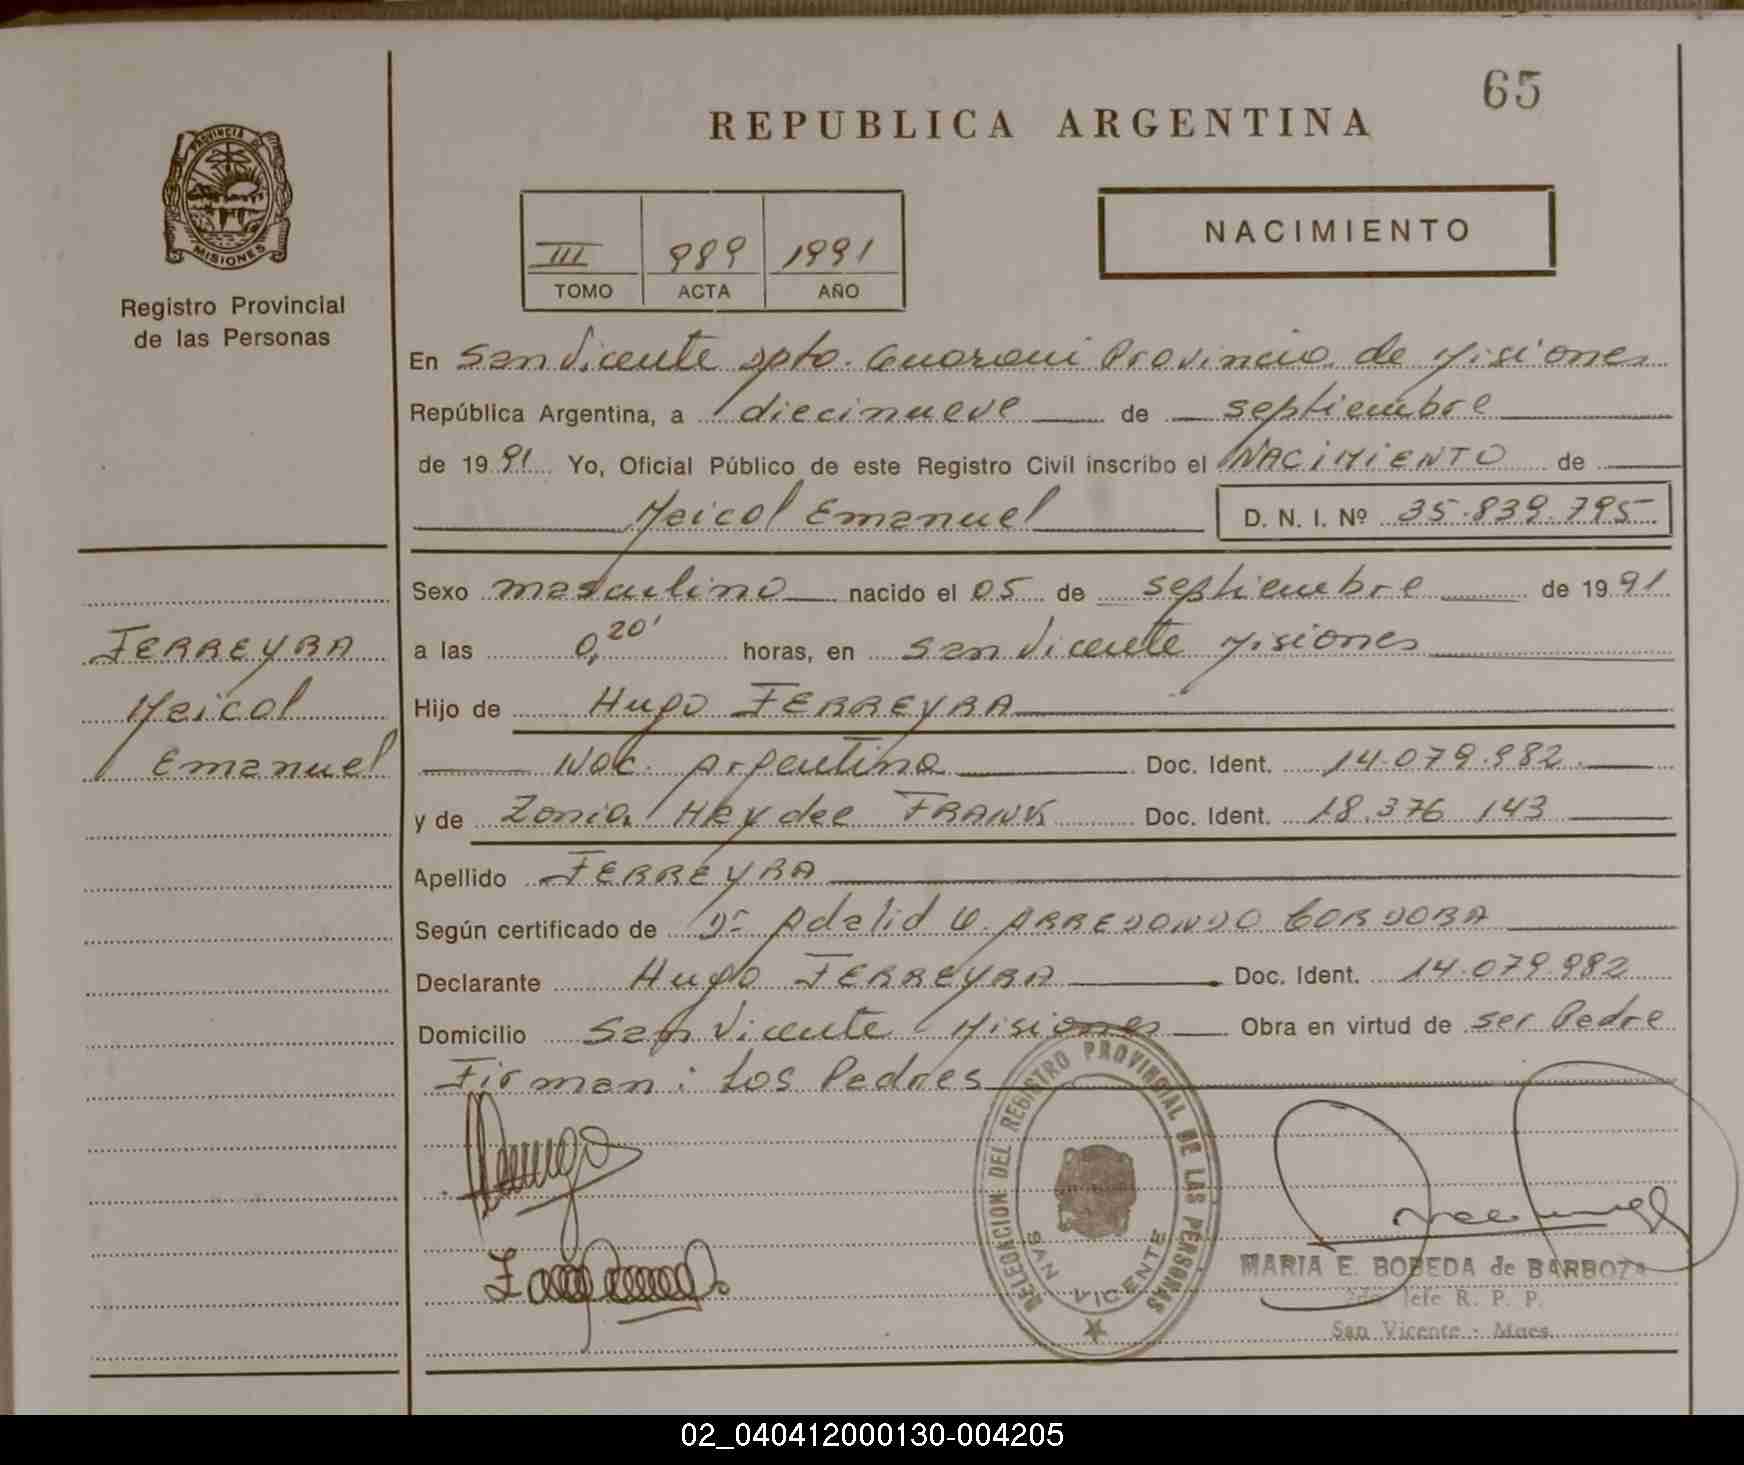 65
REPUBLICA ARGENTINA
PROVINCIA DE
MISIONES
Registro Provincial
de las Personas
III 989 1991
TOMO ACTA AÑO
NACIMIENTO
En San Vicente Dpto. Guarani Provincia de Misiones
República Argentina, a diecinueve de septiembre
de 1991 Yo, Oficial Público de este Registro Civil inscribo el NACIMIENTO de
Meicol Emanuel D. N. I. Nº 35.839.795
Sexo masculino nacido el 05 de septiembre de 1991
FERREYRA
Meicol
Emanuel
a las 0,20' horas, en San Vicente Misiones
Hijo de Hugo FERREYRA
Nac. Argentina Doc. Ident. 14.079.982
y de Zonia Haydee FRANK Doc. Ident. 18.376 143
Apellido FERREYRA
Según certificado de Dr Adalid V. ARREDONDO CORDOBA
Declarante Hugo FERREYRA Doc. Ident. 14.079.982
Domicilio San Vicente Misiones Obra en virtud de ser Padre
Firman: Los Padres
DELEGACION DEL REGISTRO PROVINCIAL DE LAS PERSONAS
SAN VICENTE
MARIA E. BOBEDA de BARBOZA
Jefe R. P. P.
San Vicente - Mnes.
02_040412000130-004205